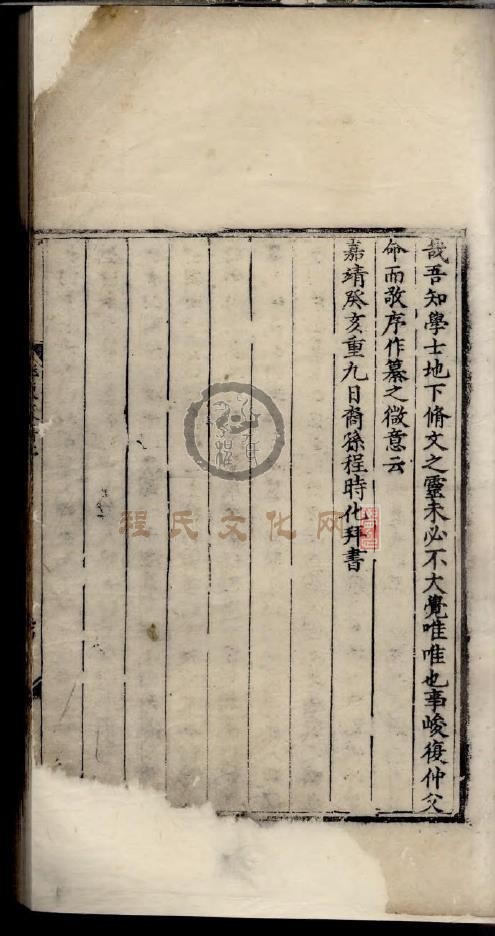 哉吾知學士地下脩文之靈未必不大覺唯唯也事峻復仲父
命而敬序作纂之微意云
嘉靖癸亥重九日裔孫程時化拜書
程氏文化网